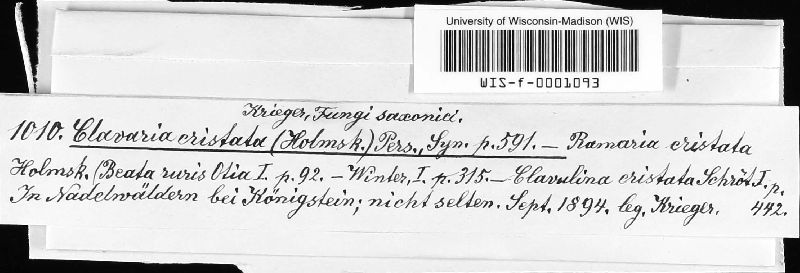 University of Wisconsin-Madison (WIS)
WIS-f-0001093
Krieger, Fungi saxonici.
1010. Clavaria cristata (Holmsk.) Pers., Syn. p. 591. — Ramaria cristata
Holmsk. (Beata ruris Otia I. p. 92. — Winter, I. p. 315. — Clavulina cristata Schröt. I. p. 442.
In Nadelwäldern bei Königstein; nicht selten. Sept. 1894. leg. Krieger.